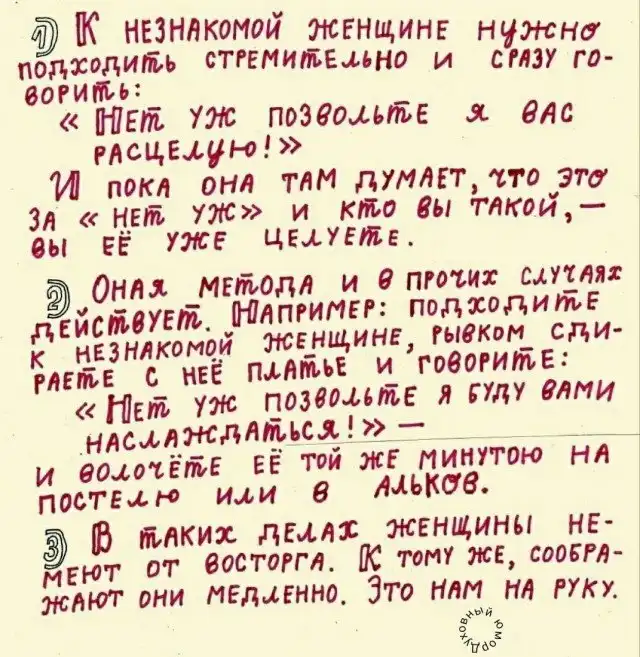 1) К НЕЗНАКОМОЙ ЖЕНЩИНЕ НУЖНО
ПОДХОДИТЬ СТРЕМИТЕЛЬНО И СРАЗУ ГО-
ВОРИТЬ:
« НЕТ УЖ ПОЗВОЛЬТЕ Я ВАС
РАСЦЕЛУЮ!»
И ПОКА ОНА ТАМ ДУМАЕТ, ЧТО ЭТО
ЗА « НЕТ УЖ» И КТО ВЫ ТАКОЙ, —
ВЫ ЕЁ УЖЕ ЦЕЛУЕТЕ.
2) ОНАЯ МЕТОДА И В ПРОЧИХ СЛУЧАЯХ
ДЕЙСТВУЕТ. НАПРИМЕР: ПОДХОДИТЕ
К НЕЗНАКОМОЙ ЖЕНЩИНЕ, РЫВКОМ СДИ-
РАЕТЕ С НЕЁ ПЛАТЬЕ И ГОВОРИТЕ:
« НЕТ УЖ ПОЗВОЛЬТЕ Я БУДУ ВАМИ
НАСЛАЖДАТЬСЯ!» —
И ВОЛОЧЁТЕ ЕЁ ТОЙ ЖЕ МИНУТОЮ НА
ПОСТЕЛЮ ИЛИ В АЛЬКОВ.
3) В ТАКИХ ДЕЛАХ ЖЕНЩИНЫ НЕ-
МЕЮТ ОТ ВОСТОРГА. К ТОМУ ЖЕ, СООБРА-
ЖАЮТ ОНИ МЕДЛЕННО. ЭТО НАМ НА РУКУ.
Духовный юмор